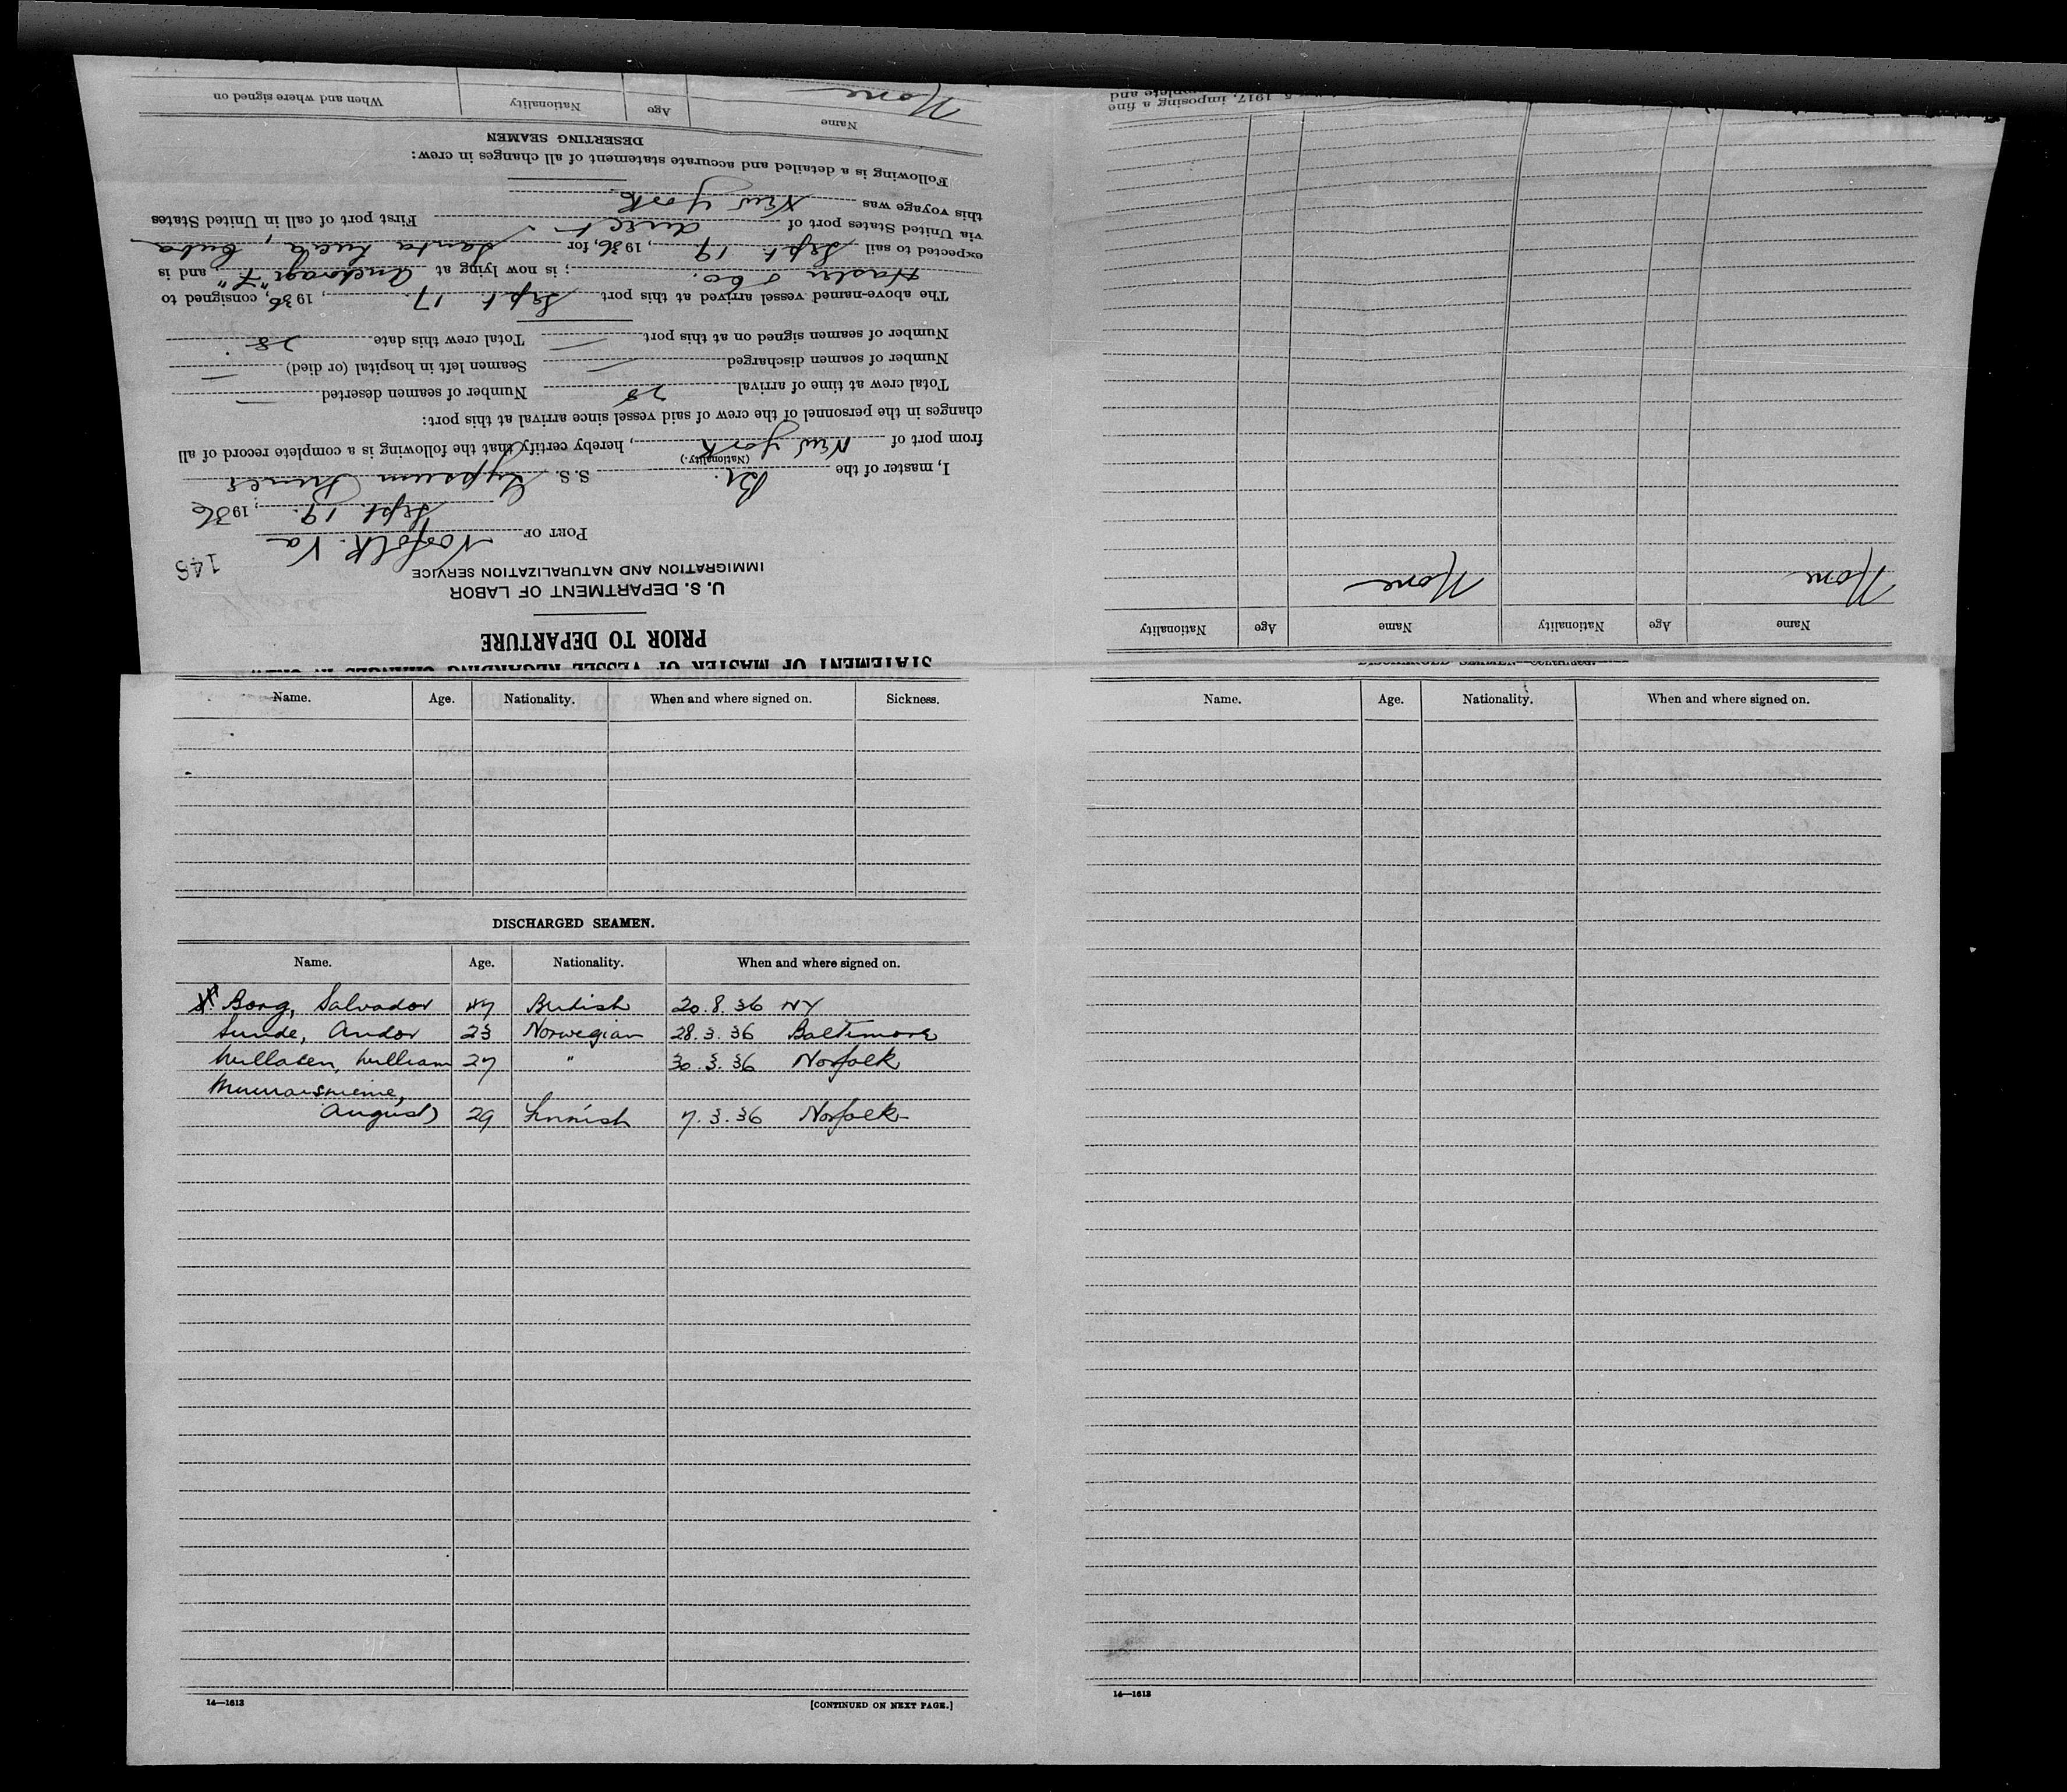 STATEMENT OF MASTER OF VESSEL REGARDING CHANGES IN CREW
PRIOR TO DEPARTURE
U. S. DEPARTMENT OF LABOR
IMMIGRATION AND NATURALIZATION SERVICE
148
PORT OF Norfolk Va
Sept. 19, 1936
I, master of the Br. S.S. Gypsum Prince
(Nationality.)
from port of New York, hereby certify that the following is a complete record of all
changes in the personnel of the crew of said vessel since arrival at this port:
Total crew at time of arrival 28 Number of seamen deserted —
Number of seamen discharged — Seamen left in hospital (or died) —
Number of seamen signed on at this port — Total crew this date 28
The above-named vessel arrived at this port Sept. 17, 1936, consigned to
Hasler & Co.; is now lying at Anchorage "F", and is
expected to sail Sept. 19, 1936, for Santa Lucia, Cuba
via United States port of direct First port of call in United States
this voyage was New York
Following is a detailed and accurate statement of all changes in crew:
DESERTING SEAMEN
Name Age Nationality When and where signed on
None
DISCHARGED SEAMEN—Continued.
Name Age Nationality Name Age Nationality
None None
1917, imposing a fine
Name. Age. Nationality. When and where signed on. Sickness.
DISCHARGED SEAMEN.
Name. Age. Nationality. When and where signed on.
Borg, Salvador 47 British 20.8.36 NY
Sunde, Andor 23 Norwegian 28.3.36 Baltimore
William 27 " 30.3.36 Norfolk
August 29 Finnish 7.3.36 Norfolk
14—1613
[CONTINUED ON NEXT PAGE.]
Name. Age. Nationality. When and where signed on.
14—1613